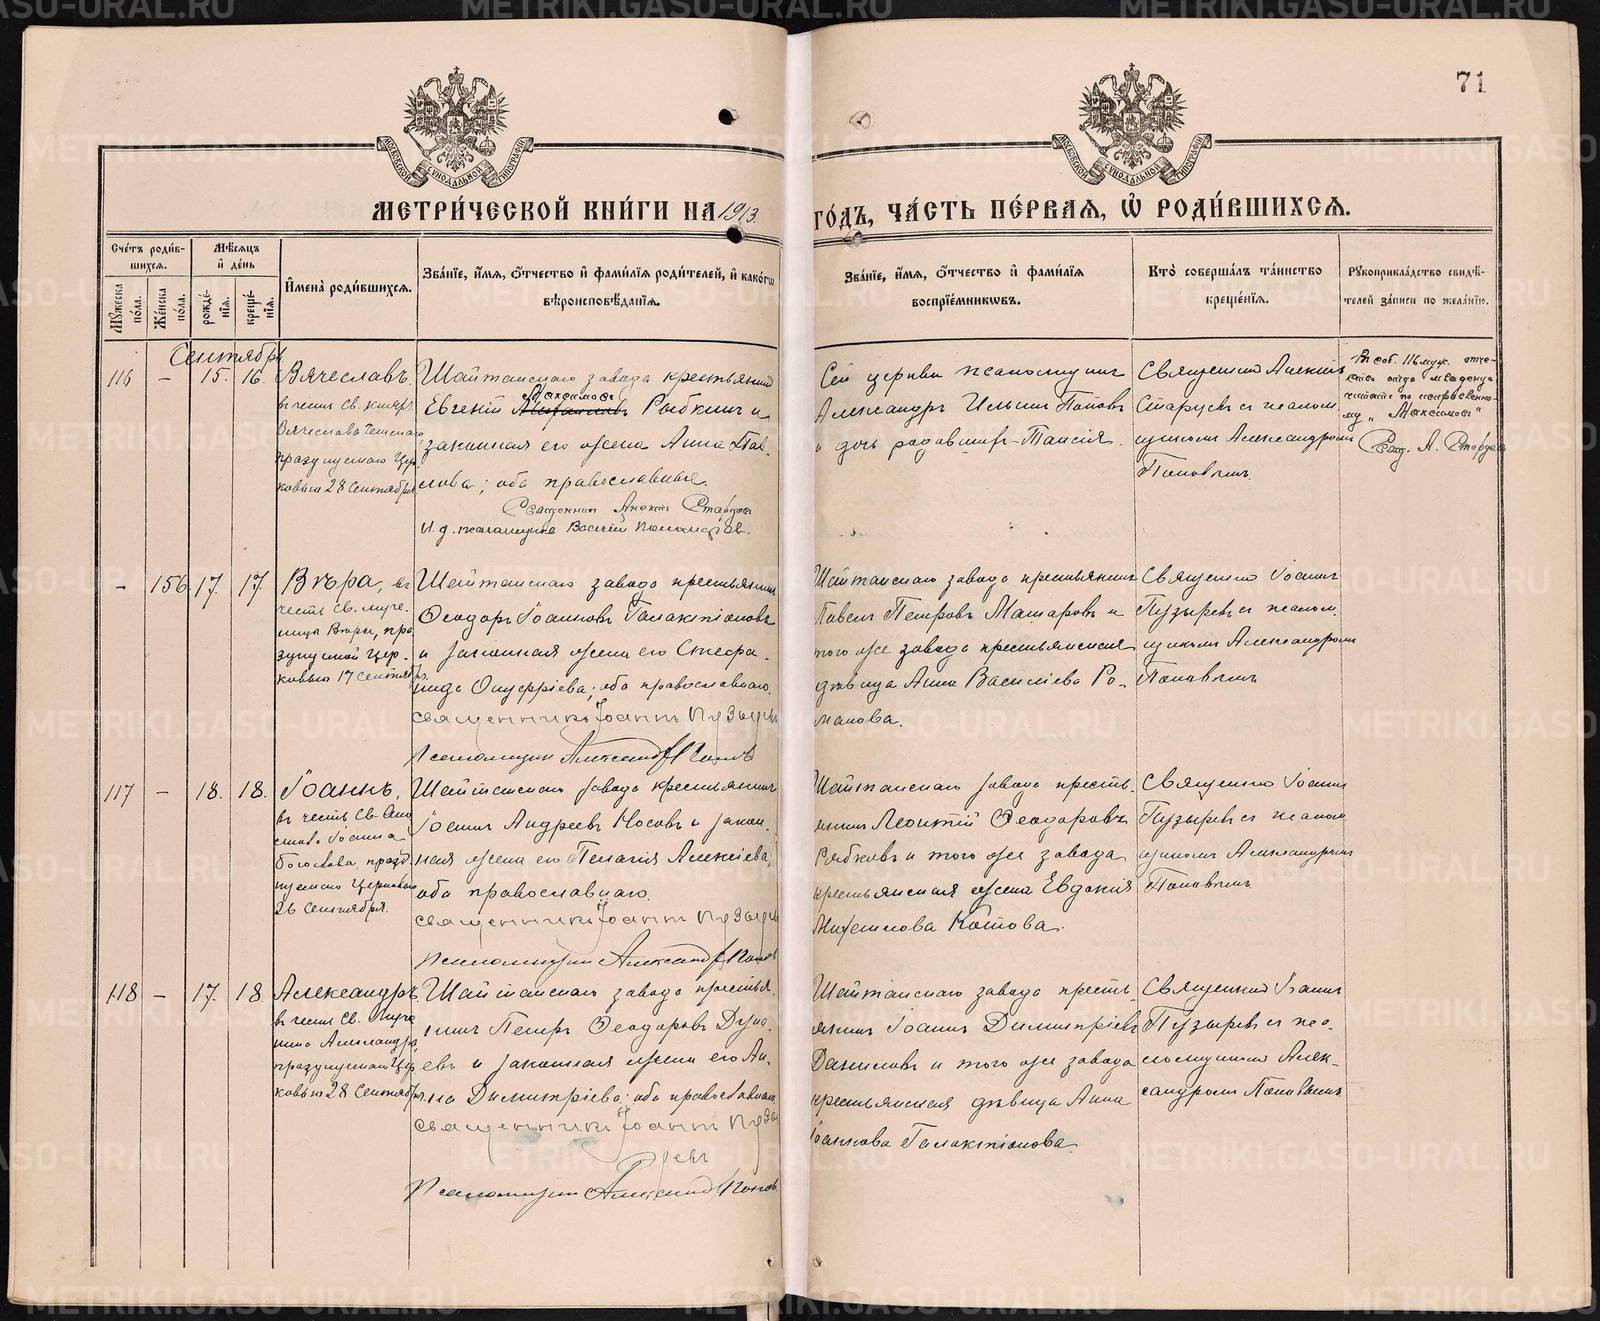 71
МОСКОВСКОЙ СѴНОДАЛЬНОЙ ТИПОГРАФІИ
МОСКОВСКОЙ СѴНОДАЛЬНОЙ ТИПОГРАФІИ
МЕТРИ́ЧЕСКОЙ КНИ́ГИ НА 1913.
ГО́ДЪ, ЧА́СТЬ ПЕ́РВАЯ, Ѽ РОДИ́ВШИХСЯ.
Сче́тъ роди́в-
шихся.
Мѣ́сяцъ
и́ де́нь
Мꙋ́жеска
по́ла.
Же́нска
по́ла.
рожде́-
нїя.
креще́-
нїя.
И҆мена̀ роди́вшихся.
Зва́нїе, и҆́мя, ѻ҆́тчество и҆ фами́лїя роди́телей, и҆ како́гѡ
вѣроисповѣ́данїя.
Зва́нїе, и҆́мя, ѻ҆́тчество и҆ фами́лїя
воспрїе́мникѡвъ.
Кто̀ соверша́лъ та́инство
креще́нїя.
Рꙋкоприкла́дство свидѣ́-
телей за́писи по жела́нїю.
Сентябрь
116 – 15. 16. Вячеславъ.
въ честь Св. князя
Вячеслава Чешскаго
празднуемаго Цер-
ковью 28 Сентября
Шайтанскаго завода крестьянинъ
Максимовъ
Евгеній Рыбкинъ и
законная его жена Анна Пав-
лова; оба православные.
Священникъ Алексій Старцевъ
И. д. псаломщика Василій Пономаревъ.
Сей церкви псаломщикъ
Александръ Ильинъ Поповъ
и дочь Таисія.
Священникъ Алексій
Старцевъ съ псалом-
щикомъ Александромъ
Поповымъ.
отче-
ство отца младенца
читать по исправленно-
му „Максимовъ“
Свящ. А. Старцевъ
– 156 17. 17. Вѣра, въ
честь Св. муче-
ницы Вѣры, пра-
зднуемой Цер-
ковью 17 Сентября.
Шайтанскаго завода крестьянинъ
Ѳеодоръ Іоанновъ Галактіоновъ
и законная жена его Стефа-
нида Онуфріева; оба православнаго.
Священникъ Іоаннъ Пузыревъ
Псаломщикъ Александръ Поповъ
Шайтанскаго завода крестьянинъ
Павелъ Петровъ Машаровъ и
того же завода крестьянская
дѣвица Анна Василіева Ро-
манова.
Священникъ Іоаннъ
Пузыревъ съ псалом-
щикомъ Александромъ
Поповымъ
117 – 18. 18. Іоаннъ,
въ честь Св. Апо-
стола Іоанна
Богослова, празд-
нуемаго Церковью
26 Сентября.
Шайтанскаго завода крестьянинъ
Іоаннъ Андреевъ Носовъ и закон-
ная жена его Пелагія Алексіева;
оба православнаго.
Священникъ Іоаннъ Пузыревъ
Псаломщикъ Александръ Поповъ
Шайтанскаго завода кресть-
янинъ Леонтій Ѳеодоровъ
Рябковъ и того же завода
крестьянская жена Евдокія
Михаилова Котова.
Священникъ Іоаннъ
Пузыревъ съ псалом-
щикомъ Александромъ
Поповымъ
118 – 17. 18. Александръ,
въ честь Св. Муче-
ника Александра
празднуемаго Цер-
ковью 28 Сентября.
Шайтанскаго завода крестья-
нинъ Петръ Ѳеодоровъ Дуна-
евъ и законная жена его Ан-
на Димитріева; оба православнаго
Священникъ Іоаннъ Пузы-
ревъ
Псаломщикъ Александръ Поповъ
Шайтанскаго завода кресть-
янинъ Іоаннъ Димитріевъ
Даниловъ и того же завода
крестьянская дѣвица Анна
Іоаннова Галактіонова.
Священникъ Іоаннъ
Пузыревъ съ пса-
ломщикомъ Алек-
сандромъ Поповымъ
METRIKI.GASO-URAL.RU